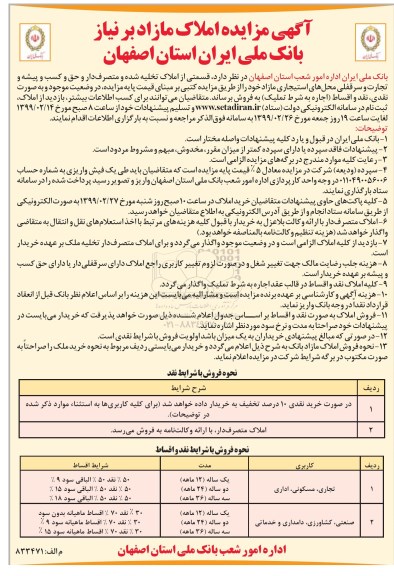 آگهی مزایده املاک مازاد بر نیاز
بانک ملی ایران استان اصفهان
بانک ملی ایران اداره امور شعب استان اصفهان در نظر دارد، قسمتی از املاک تخلیه شده و متصرف‌دار و حق و کسب و پیشه و
تجارت و سرقفلی محل‌های استیجاری مازاد خود را از طریق مزایده کتبی بر مبنای قیمت پایه مزایده، در وضعیت موجود و به صورت
نقدی، نقد و اقساط (اجاره به شرط تملیک) به فروش برساند. متقاضیان می‌توانند برای کسب اطلاعات بیشتر، بازدید از املاک،
ثبت‌نام در سامانه الکترونیکی دولت (ستاد) www.setadiran.ir و تسلیم پیشنهادات خود از ساعت ۸ صبح مورخ ۱۳۹۹/۰۲/۱۴
لغایت ساعت ۱۹ روز جمعه مورخ ۱۳۹۹/۰۲/۲۶ به سامانه فوق‌الذکر مراجعه و نسبت به بارگذاری اطلاعات اقدام نمایند.
توضیحات:
۱- بانک ملی ایران در قبول و یا رد کلیه پیشنهادات واصله مختار است.
۲- پیشنهادات فاقد سپرده یا دارای سپرده کمتر از میزان مقرر، مخدوش، مبهم و مشروط مردود است.
۳- رعایت کلیه موارد مندرج در برگه‌های مزایده الزامی است.
۴- سپرده (ودیعه) شرکت در مزایده معادل ۵٪ قیمت پایه مزایده است که متقاضیان باید طی یک فیش واریزی به شماره حساب
در وجه واحد کارپردازی اداره امور شعب بانک ملی استان اصفهان واریز و تصویر رسید پرداخت شده را در سامانه
ستاد بارگذاری نمایند.
۵- کلیه پاکت‌های حاوی پیشنهادات متقاضیان خرید املاک در ساعت ۱۰ صبح روز شنبه مورخ ۱۳۹۹/۰۲/۲۷ به صورت الکترونیکی
از طریق سامانه ستاد انجام و از طریق آدرس الکترونیکی به اطلاع متقاضیان خواهد رسید.
۶- املاک متصرف‌دار با ارائه وکالت بلاعزل به خریدار با قبول کلیه هزینه‌های مرتبط با اخذ استعلام‌های نقل و انتقال به متقاضی
واگذار خواهد شد (هزینه تنظیم وکالت‌نامه بالمناصفه خواهد بود.)
۷- بازدید از کلیه املاک الزامی است و در وضعیت موجود واگذار می‌گردد و برای املاک متصرف‌دار تخلیه ملک بر عهده خریدار
است.
۸- هزینه جلب رضایت مالک جهت تغییر شغل و در صورت لزوم تغییر کاربری راجع املاک دارای سرقفلی یا دارای حق کسب
و پیشه بر عهده خریدار است.
۹- کلیه املاک نقد و اقساط در قالب عقد اجاره به شرط تملیک واگذار می‌گردد.
۱۰- هزینه آگهی و کارشناسی بر عهده برنده مزایده است و مشارالیه می‌بایست این هزینه را بر اساس اعلام نظر بانک قبل از انعقاد
قرارداد نقداً در وجه بانک واریز نماید.
۱۱- فروش املاک به صورت نقد و اقساط بر اساس جدول اعلام شده صورت خواهد پذیرفت که خریدار می‌بایست در
پیشنهادات خود صراحتاً به مدت و نرخ سود مورد نظر اشاره نماید.
۱۲- در صورتی که مبالغ پیشنهادی خریداران به یک میزان باشد اولویت فروش با شرایط نقدی است.
۱۳- نحوه فروش املاک مازاد بانک به شرح ذیل اعلام می‌گردد و خریدار می‌بایستی ردیف مربوط به نحوه خرید ملک را صراحتاً به
صورت مکتوب در برگه شرایط شرکت در مزایده اعلام نماید.
نحوه فروش با شرایط نقد
ردیف شرح شرایط
۱ در صورت خرید نقدی ۱۰ درصد تخفیف به خریدار داده خواهد شد (برای کلیه کاربری‌ها به استثناء موارد ذکر شده
در توضیحات).
۲ املاک متصرف‌دار، با ارائه وکالت‌نامه به فروش می‌رسد.
نحوه فروش با شرایط نقد و اقساط
ردیف کاربری مدت شرایط اقساط
۱ تجاری، مسکونی، اداری یک ساله (۱۲ ماهه) ۵۰٪ نقد ۵۰٪ الباقی سود ۹٪
دو ساله (۲۴ ماهه) ۵۰٪ نقد ۵۰٪ الباقی سود ۱۵٪
سه ساله (۳۶ ماهه) ۵۰٪ نقد ۵۰٪ الباقی سود ۱۸٪
۲ صنعتی، کشاورزی، دامداری و خدماتی یک ساله (۱۲ ماهه) ۳۰٪ نقد ۷۰٪ اقساط ماهیانه بدون سود
دو ساله (۲۴ ماهه) ۳۰٪ نقد ۷۰٪ اقساط ماهیانه سود ۹٪
سه ساله (۳۶ ماهه) ۳۰٪ نقد ۷۰٪ اقساط ماهیانه سود ۱۵٪
اداره امور شعب بانک ملی استان اصفهان
م الف: ۸۳۳۴۷۱